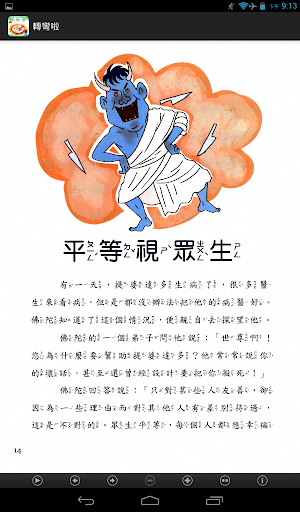 下午 9:13
轉彎啦
平等視眾生
有一天，提婆達多生病了，很多醫
生來看病，但是都沒辦法把他的病醫好。
佛陀知道了這個情況，便親自去探望他。
佛陀的一個弟子問他說：「世尊啊！
您為什麼要幫助提婆達多？他常常說你
的壞話，甚至還曾經好幾次計劃要把你殺死！」
佛陀回答說：「只對某些人友善，卻
因為一些理由而對其他人有差別待遇，
這是不對的。眾生平等，每個人都想幸福
14